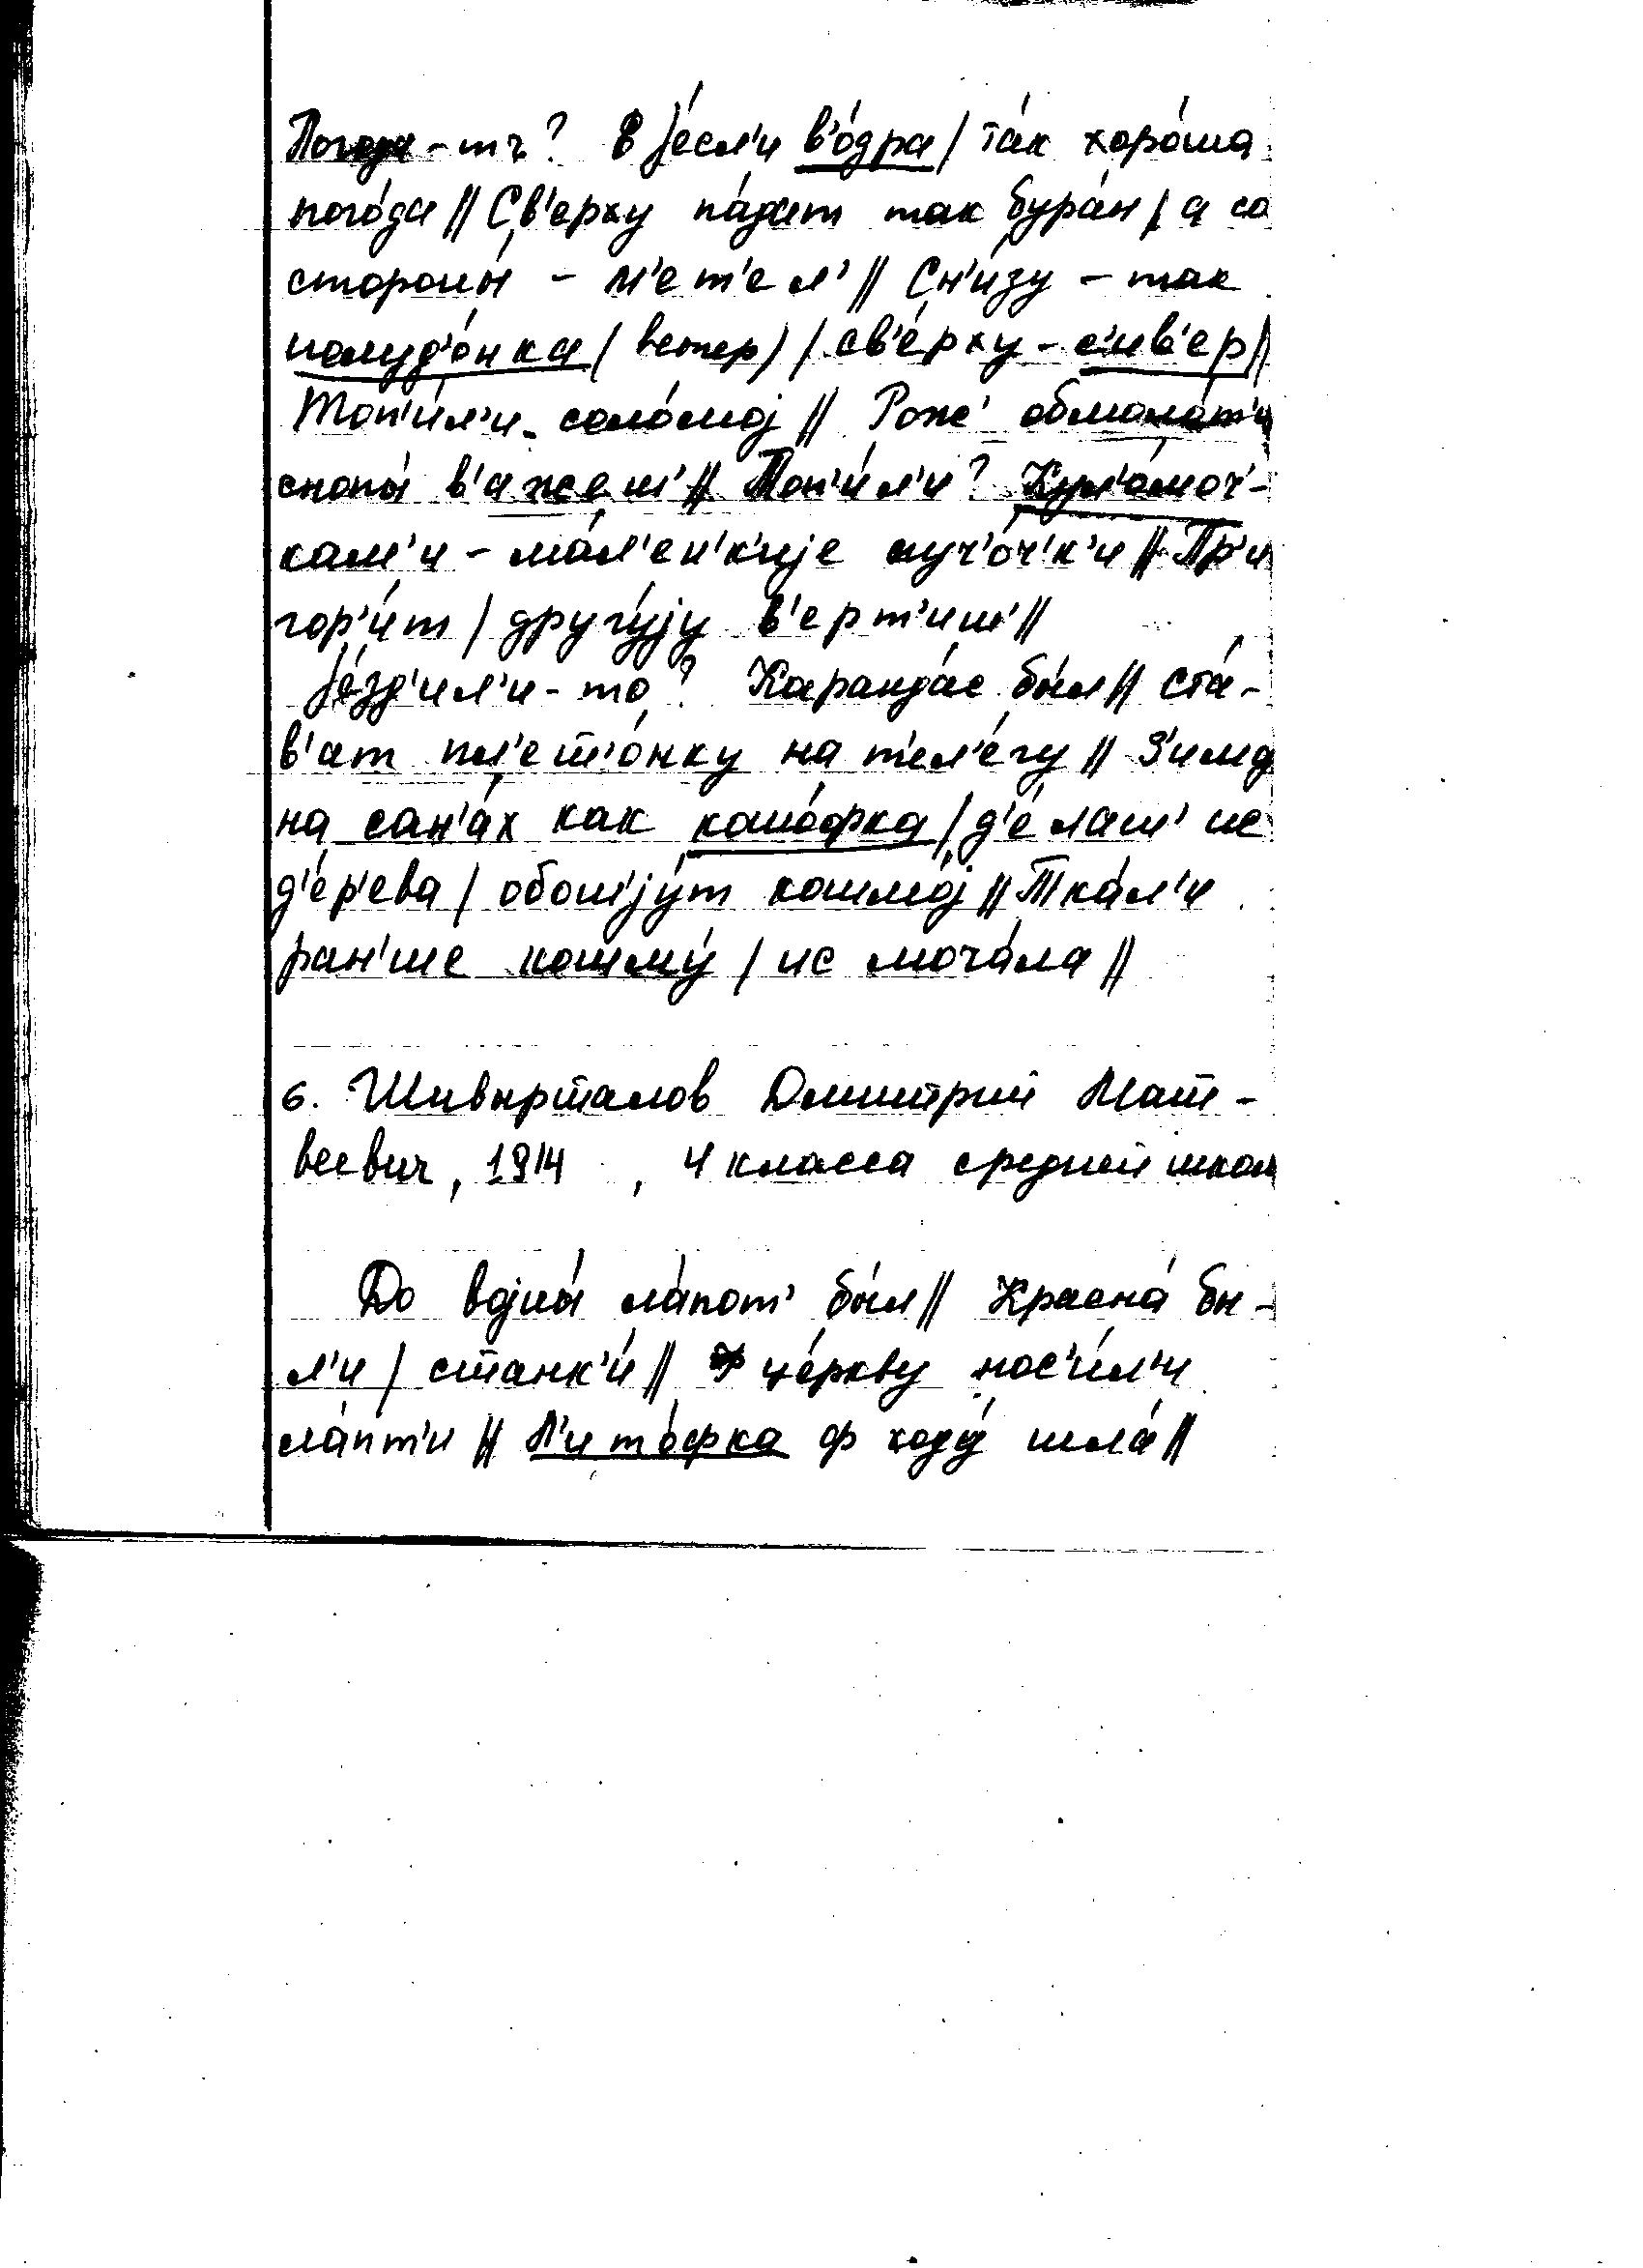 Погода-тъ? В jéсл'и в'óдра / тáк хорóша
погóда // Св'ерху пáдат так бурáн / а со
стороны́ - м'ет'ел' // Сн'úзу - так
полуд'óнка (ветер) / св'éрху - с'ив'ер //
Топ'úл'и солóмоj // Рож' обмолáт'и
снопы́ в'ажеш' // Топ'úл'и? Кул'óмоч'-
кам'и - мáл'ен'к'иjе пуч'óч'к'и // Пр'и
гор'úт / другýjу в'ерт'иш' //
Jéзд'ил'и-то? Карандáс бы́л // стá-
в'ат пл'ет'óнку на т'ел'éгу // З'имо
на сан'áх как кошóфка / д'éлаш' ис
д'éр'ева / обошjýт кошмój // Ткáл'и
ран'ше кошмý / ис мочáла //
6. Шивырталов Дмитрий Мат-
веевич, 1914 , 4 класса средней школ
До воjны́ лáпот' бы́л // Краснá бы-
л'и / станк'ú // ф цéркву нос'úл'и
лáпт'и // П'итóфка ф ходý шлá //